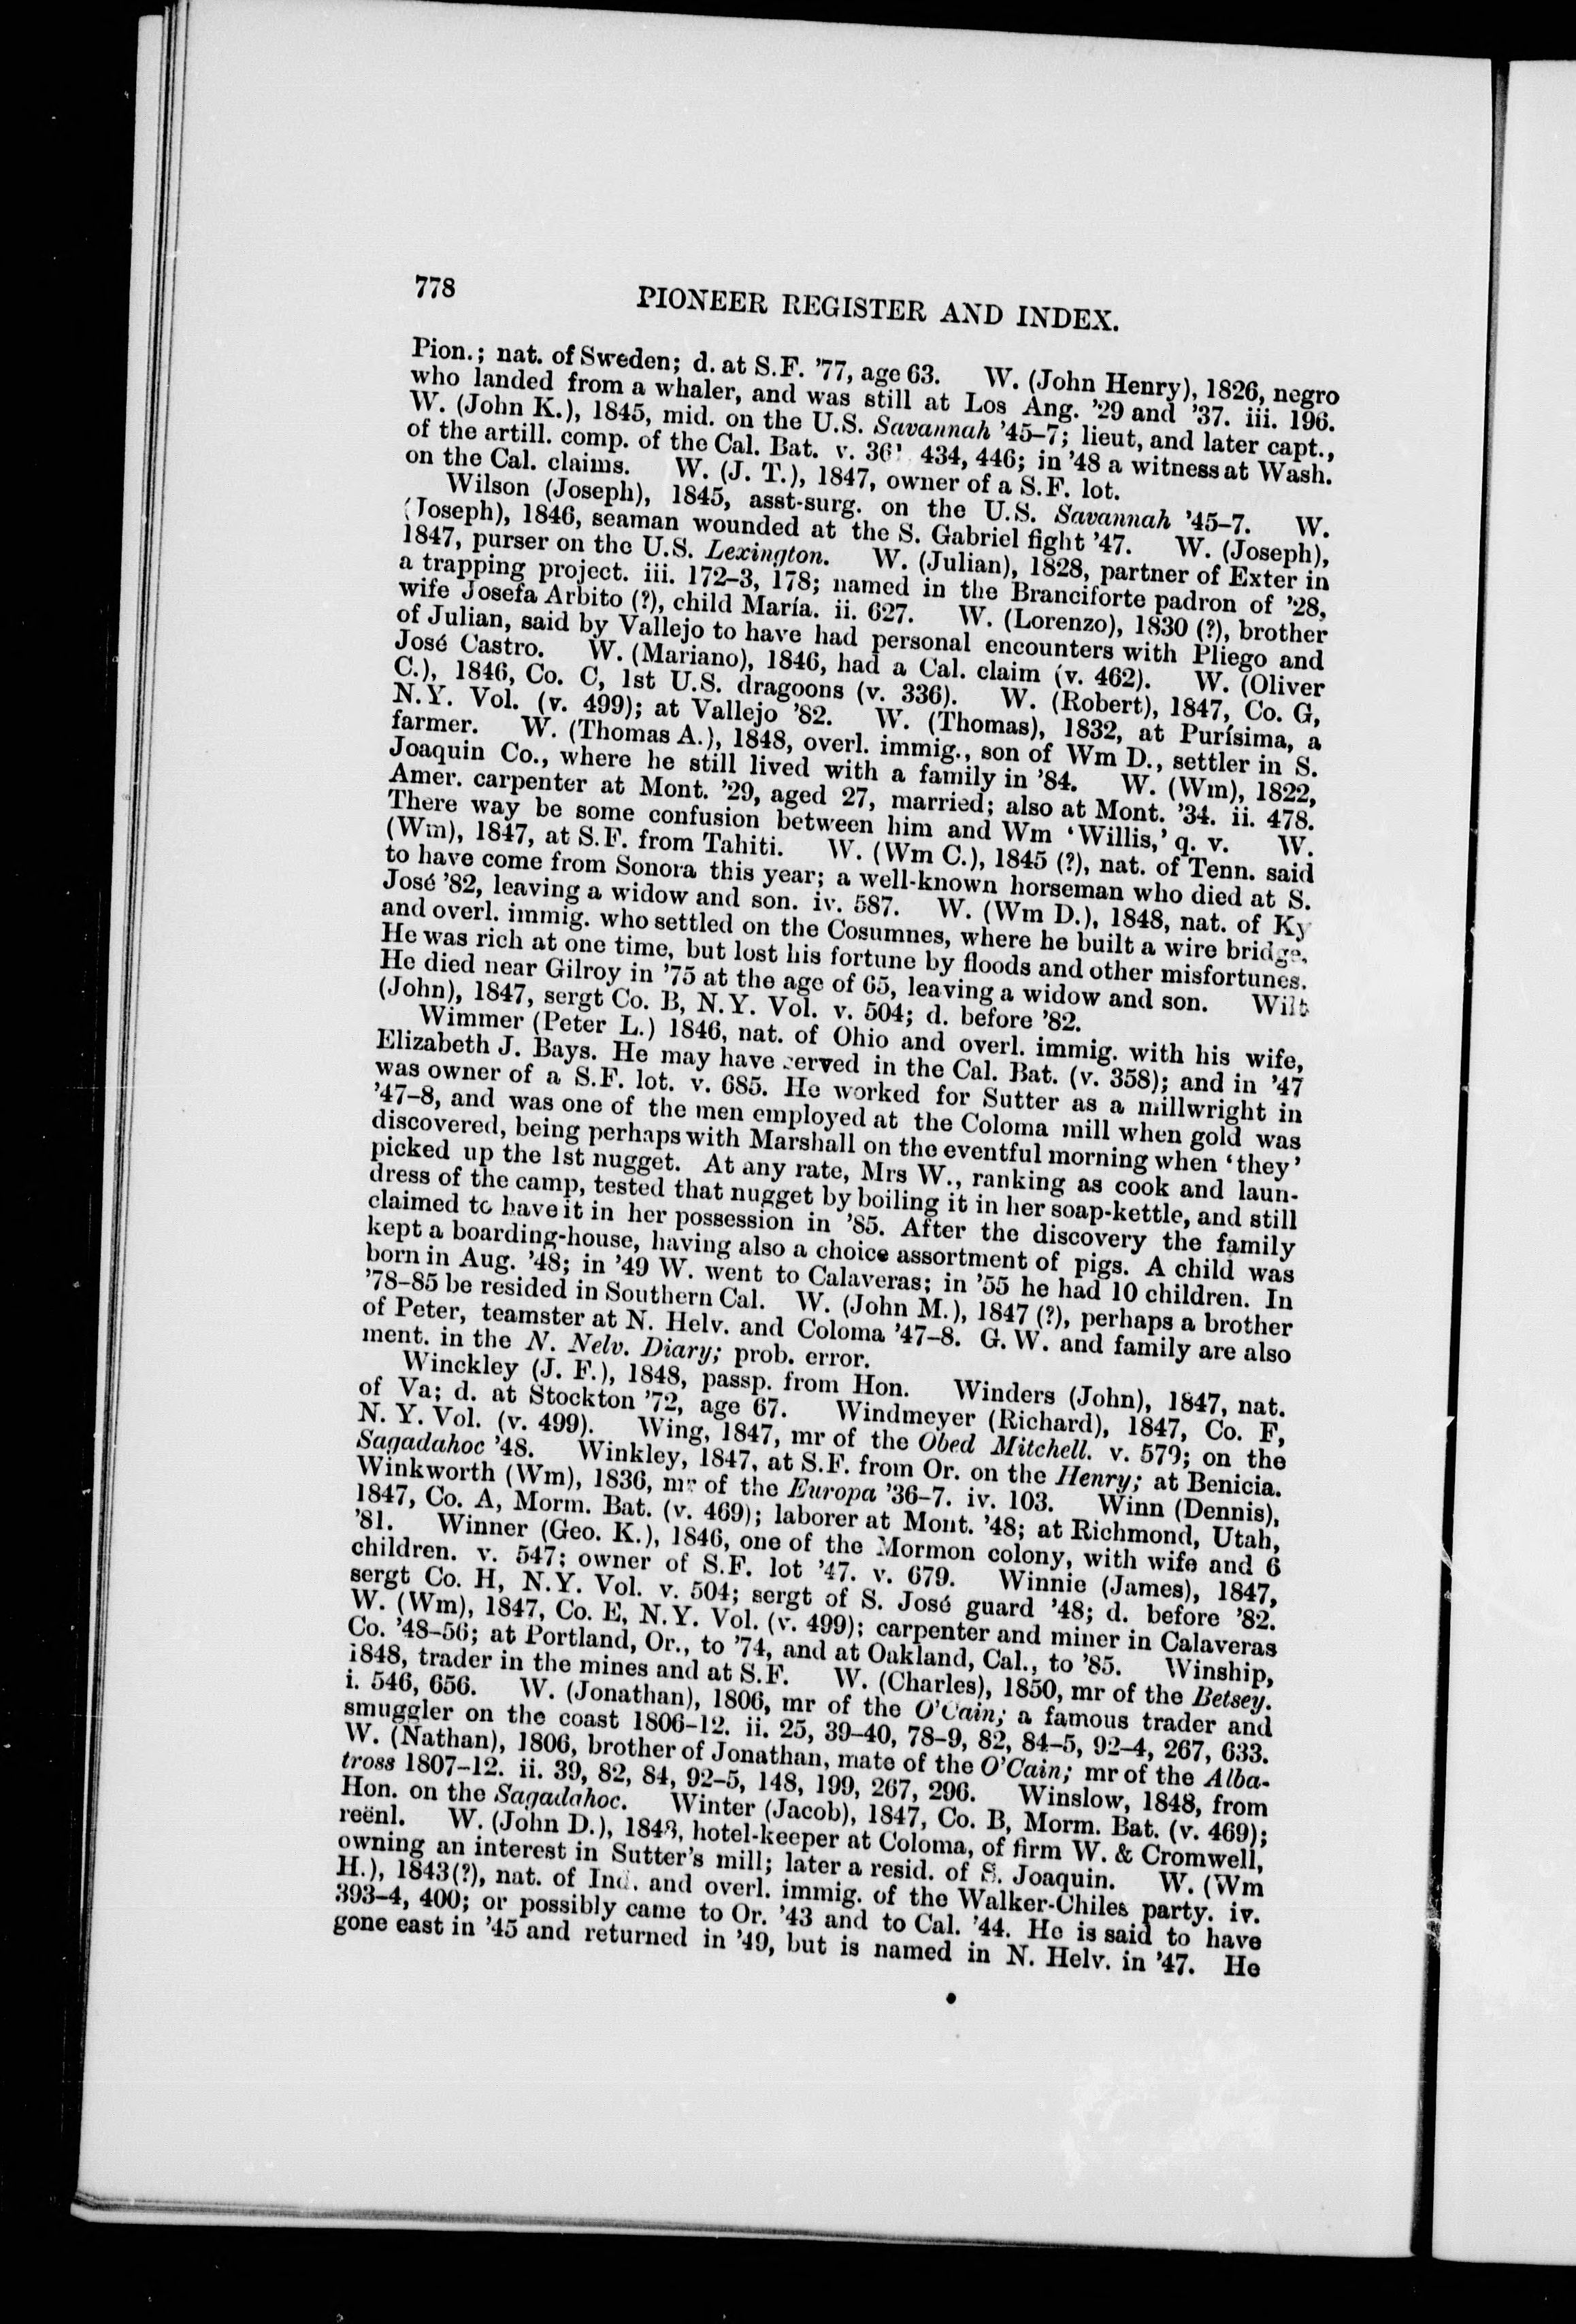 778
PIONEER REGISTER AND INDEX.
Pion.; nat. of Sweden; d. at S.F. '77, age 63. W. (John Henry), 1826, negro
who landed from a whaler, and was still at Los Ang. '29 and '37. iii. 196.
W. (John K.), 1845, mid. on the U.S. Savannah '45–7; lieut, and later capt.,
of the artill. comp. of the Cal. Bat. v. 361, 434, 446; in '48 a witness at Wash.
on the Cal. claims. W. (J. T.), 1847, owner of a S.F. lot.
Wilson (Joseph), 1845, asst-surg. on the U.S. Savannah '45–7. W.
(Joseph), 1846, seaman wounded at the S. Gabriel fight '47. W. (Joseph),
1847, purser on the U.S. Lexington. W. (Julian), 1828, partner of Exter in
a trapping project. iii. 172–3, 178; named in the Branciforte padron of '28,
wife Josefa Arbito (?), child María. ii. 627. W. (Lorenzo), 1830 (?), brother
of Julian, said by Vallejo to have had personal encounters with Pliego and
José Castro. W. (Mariano), 1846, had a Cal. claim (v. 462). W. (Oliver
C.), 1846, Co. C, 1st U.S. dragoons (v. 336). W. (Robert), 1847, Co. G,
N.Y. Vol. (v. 499); at Vallejo '82. W. (Thomas), 1832, at Purísima, a
farmer. W. (Thomas A.), 1848, overl. immig., son of Wm D., settler in S.
Joaquin Co., where he still lived with a family in '84. W. (Wm), 1822,
Amer. carpenter at Mont. '29, aged 27, married; also at Mont. '34. ii. 478.
There way be some confusion between him and Wm 'Willis,' q. v. W.
(Wm), 1847, at S.F. from Tahiti. W. (Wm C.), 1845 (?), nat. of Tenn. said
to have come from Sonora this year; a well-known horseman who died at S.
José '82, leaving a widow and son. iv. 587. W. (Wm D.), 1848, nat. of Ky
and overl. immig. who settled on the Cosumnes, where he built a wire bridge.
He was rich at one time, but lost his fortune by floods and other misfortunes.
He died near Gilroy in '75 at the age of 65, leaving a widow and son. Wilt
(John), 1847, sergt Co. B, N.Y. Vol. v. 504; d. before '82.
Wimmer (Peter L.) 1846, nat. of Ohio and overl. immig. with his wife,
Elizabeth J. Bays. He may have served in the Cal. Bat. (v. 358); and in '47
was owner of a S.F. lot. v. 685. He worked for Sutter as a millwright in
'47–8, and was one of the men employed at the Coloma mill when gold was
discovered, being perhaps with Marshall on the eventful morning when 'they'
picked up the 1st nugget. At any rate, Mrs W., ranking as cook and laun-
dress of the camp, tested that nugget by boiling it in her soap-kettle, and still
claimed to have it in her possession in '85. After the discovery the family
kept a boarding-house, having also a choice assortment of pigs. A child was
born in Aug. '48; in '49 W. went to Calaveras; in '55 he had 10 children. In
'78–85 be resided in Southern Cal. W. (John M.), 1847 (?), perhaps a brother
of Peter, teamster at N. Helv. and Coloma '47–8. G. W. and family are also
ment. in the N. Nelv. Diary; prob. error.
Winckley (J. F.), 1848, passp. from Hon. Winders (John), 1847, nat.
of Va; d. at Stockton '72, age 67. Windmeyer (Richard), 1847, Co. F,
N. Y. Vol. (v. 499). Wing, 1847, mr of the Obed Mitchell. v. 579; on the
Sagadahoc '48. Winkley, 1847, at S.F. from Or. on the Henry; at Benicia.
Winkworth (Wm), 1836, mr of the Europa '36–7. iv. 103. Winn (Dennis),
1847, Co. A, Morm. Bat. (v. 469); laborer at Mont. '48; at Richmond, Utah,
'81. Winner (Geo. K.), 1846, one of the Mormon colony, with wife and 6
children. v. 547; owner of S.F. lot '47. v. 679. Winnie (James), 1847,
sergt Co. H, N.Y. Vol. v. 504; sergt of S. José guard '48; d. before '82.
W. (Wm), 1847, Co. E, N.Y. Vol. (v. 499); carpenter and miner in Calaveras
Co. '48–56; at Portland, Or., to '74, and at Oakland, Cal., to '85. Winship,
1848, trader in the mines and at S.F. W. (Charles), 1850, mr of the Betsey.
i. 546, 656. W. (Jonathan), 1806, mr of the O'Cain; a famous trader and
smuggler on the coast 1806–12. ii. 25, 39–40, 78–9, 82, 84–5, 92–4, 267, 633.
W. (Nathan), 1806, brother of Jonathan, mate of the O'Cain; mr of the Alba-
tross 1807–12. ii. 39, 82, 84, 92–5, 148, 199, 267, 296. Winslow, 1848, from
Hon. on the Sagadahoc. Winter (Jacob), 1847, Co. B, Morm. Bat. (v. 469);
reënl. W. (John D.), 1848, hotel-keeper at Coloma, of firm W. & Cromwell,
owning an interest in Sutter's mill; later a resid. of S. Joaquin. W. (Wm
H.), 1843(?), nat. of Ind. and overl. immig. of the Walker-Chiles party. iv.
393–4, 400; or possibly came to Or. '43 and to Cal. '44. He is said to have
gone east in '45 and returned in '49, but is named in N. Helv. in '47. He